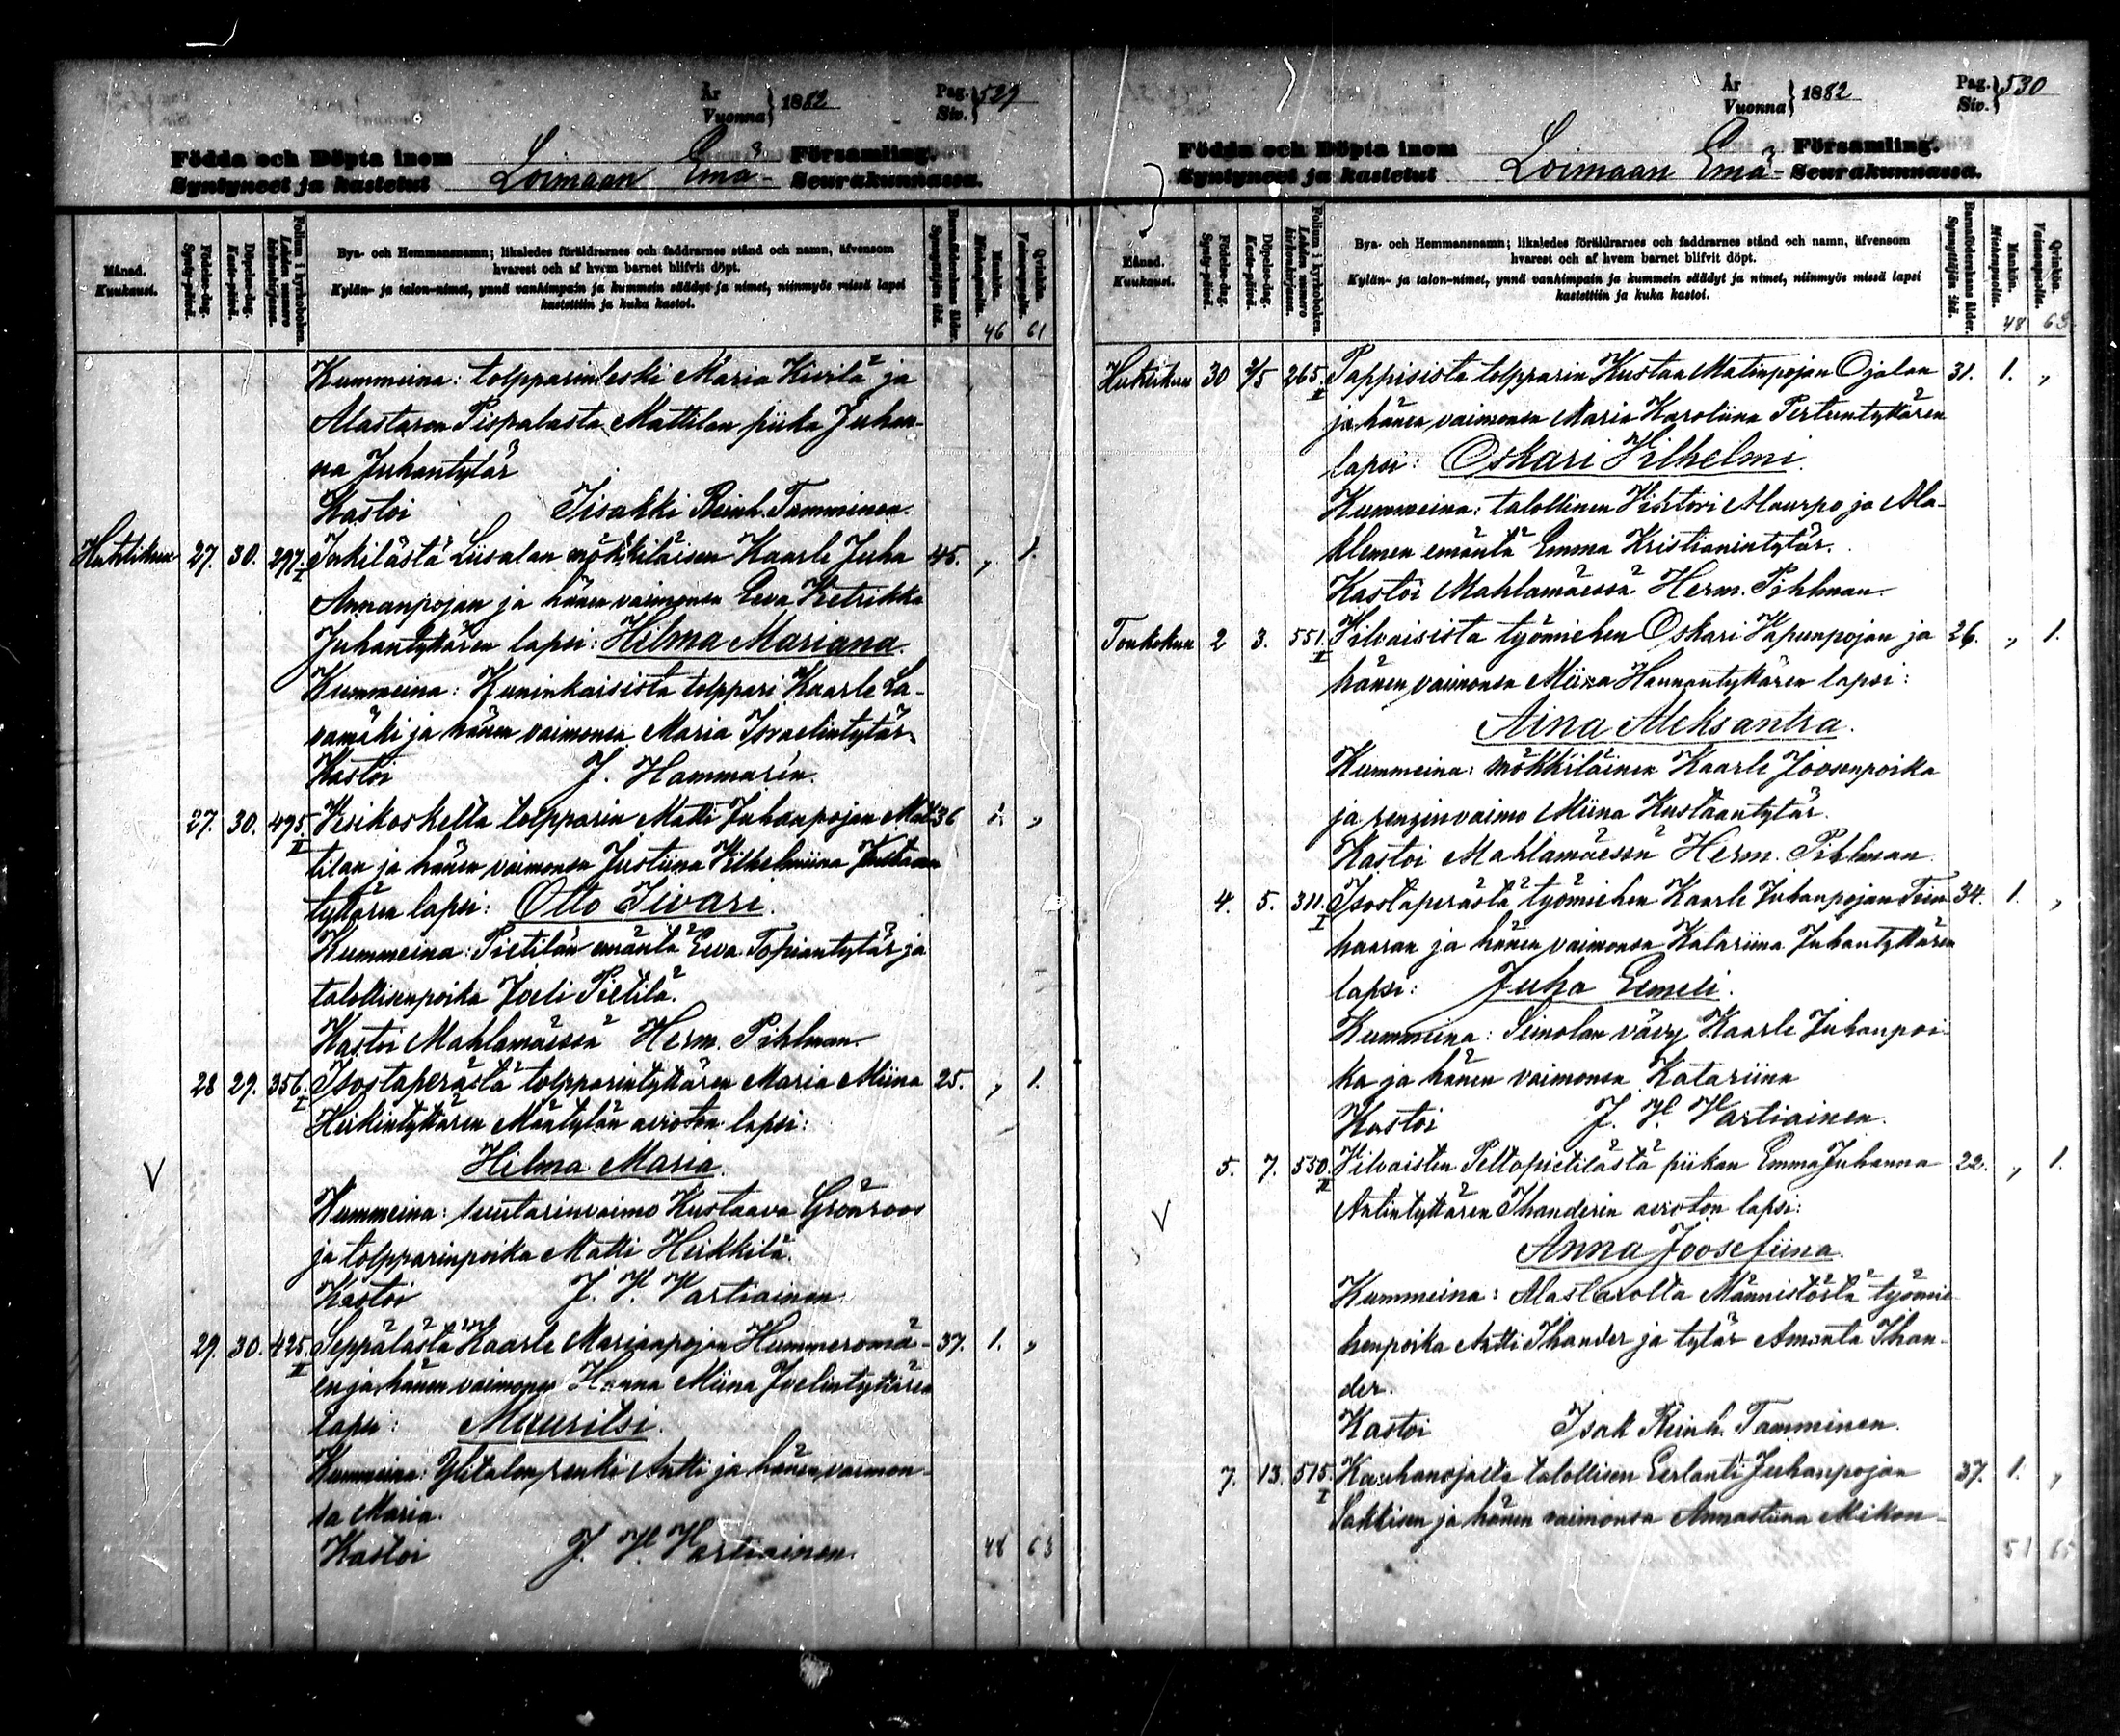 År
Vuonna } 1882
Pag.
Siv. } 529
Födda och Döpta inom
Syntyneet ja kastetut
Loimaan Emä-
Församling.
Seurakunnassa.
Månad.
Kuukausi.
Födelse-dag.
Synty-päivä.
Döpelse-dag.
Kaste-päivä.
Folium i kyrkoboken.
Lehden numero kirkonkirjassa.
Bya- och Hemmansnamn; likaledes föräldrarnes och faddrarnes stånd och namn, äfvensom
hvarest och af hvem barnet blifvit döpt.
Kylän- ja talon-nimet, ynnä vanhimpain ja kummein säädyt ja nimet, niinmyös missä lapsi
kastettiin ja kuka kastoi.
Barnaföderskans ålder.
Synnyttäjän ikä.
Mankön.
Miehenpuolia.
Qvinkön.
Vaimonpuolia.
46 61
Kummeina: tolpparinleski Maria Kivilä ja
Alastaron Pispalasta Mattilan piika Juhan-
na Juhantytär
Kastoi Iisakki Reinh. Tamminen.
Huhtikuu 27. 30. 297. I Inkilästä Liisalan mökkiläisen Kaarle Juha 45. „ 1.
Annanpojan ja hänen vaimonsa Eeva Retrikka
Juhantyttären lapsi: Hilma Mariana.
Kummeina: Kuninkaisista tolppari Kaarle La-
vamäki ja hänen vaimonsa Maria Israelintytär.
Kastoi J. Hammarén.
27. 30. 495. II Vesikoskelta tolpparin Matti Juhanpojan Mat- 36 1. „
tilan ja hänen vaimonsa Justiina Vilhelmiina Kustaan
tyttären lapsi: Otto Iivari.
Kummeina: Pietilän emäntä Eeva Topiantytär ja
talollisenpoika Joeli Pietilä.
Kastoi Mahlamäessä Herm. Pihlman.
28 29. 356. I Isostaperästä tolpparintyttären Maria Miina 25. „ 1.
Heikintyttären Mäntylän avioton lapsi:
Hilma Maria.
Kummeina: suutarinvaimo Kustaava Grönroos
ja tolpparinpoika Matti Heikkilä.
Kastoi J. V. Vartiainen.
29. 30. 425. II Seppälästä Kaarle Marianpojan Hummeromä- 37. 1. „
en ja hänen vaimonsa Hanna Miina Joelintyttären
lapsi: Mauritsi.
Kummeina: Ylitalon renki Antti ja hänen vaimon-
sa Maria.
Kastoi J. V. Vartiainen.
48 63
År
Vuonna } 1882
Pag.
Siv. } 530
Födda och Döpta inom
Syntyneet ja kastetut
Loimaan Emä-
Församling.
Seurakunnassa.
Månad.
Kuukausi.
Födelse-dag.
Synty-päivä.
Döpelse-dag.
Kaste-päivä.
Folium i kyrkoboken.
Lehden numero kirkonkirjassa.
Bya- och Hemmansnamn; likaledes föräldrarnes och faddrarnes stånd och namn, äfvensom
hvarest och af hvem barnet blifvit döpt.
Kylän- ja talon-nimet, ynnä vanhimpain ja kummein säädyt ja nimet, niinmyös missä lapsi
kastettiin ja kuka kastoi.
Barnaföderskans ålder.
Synnyttäjän ikä.
Mankön.
Miehenpuolia.
Qvinkön.
Vaimonpuolia.
48 63
Huhtikuu 30 2/5 265. II Pappisista tolpparin Kustaa Matinpojan Ojalan 31. 1. „
ja hänen vaimonsa Maria Karoliina Pertuntyttären
lapsi: Oskari Vilhelmi.
Kummeina: talollinen Vihtori Alaurpo ja Ala-
klemen emäntä Emma Kristianintytär.
Kastoi Mahlamäessä Herm. Pihlman.
Toukokuu 2 3. 551. II Vilvaisista työmiehen Oskari Vapunpojan ja 26. „ 1.
hänen vaimonsa Miina Hannantyttären lapsi:
Aina Aleksantra.
Kummeina: mökkiläinen Kaarle Joosenpoika
ja renginvaimo Miina Kustaantytär.
Kastoi Mahlamäessä Herm. Pihlman.
4. 5. 311. I Isostaperästä työmiehen Kaarle Juhanpojan Tien- 34. 1. „
haaran ja hänen vaimonsa Katariina Juhantyttären
lapsi: Juho Eemeli.
Kummeina: Seimolan vävy Kaarle Juhanpoi-
ka ja hänen vaimonsa Katariina
Kastoi J. V. Vartiainen.
5. 7. 550. II Vilvaisten Peltopietilästä piikan Emma Juhanna 22. „ 1.
Antintyttären Ihanderin avioton lapsi:
Anna Joosefiina.
Kummeina: Alastarolta Männistöstä työmie-
henpoika Antti Ihander ja tytär Amanta Ihan-
der.
Kastoi Isak Reinh. Tamminen.
7. 13. 515. I Kauhanojalta talollisen Eerlanti Juhanpojan 37. 1. „
Sakkisen ja hänen vaimonsa Annastiina Mikon-
51 65